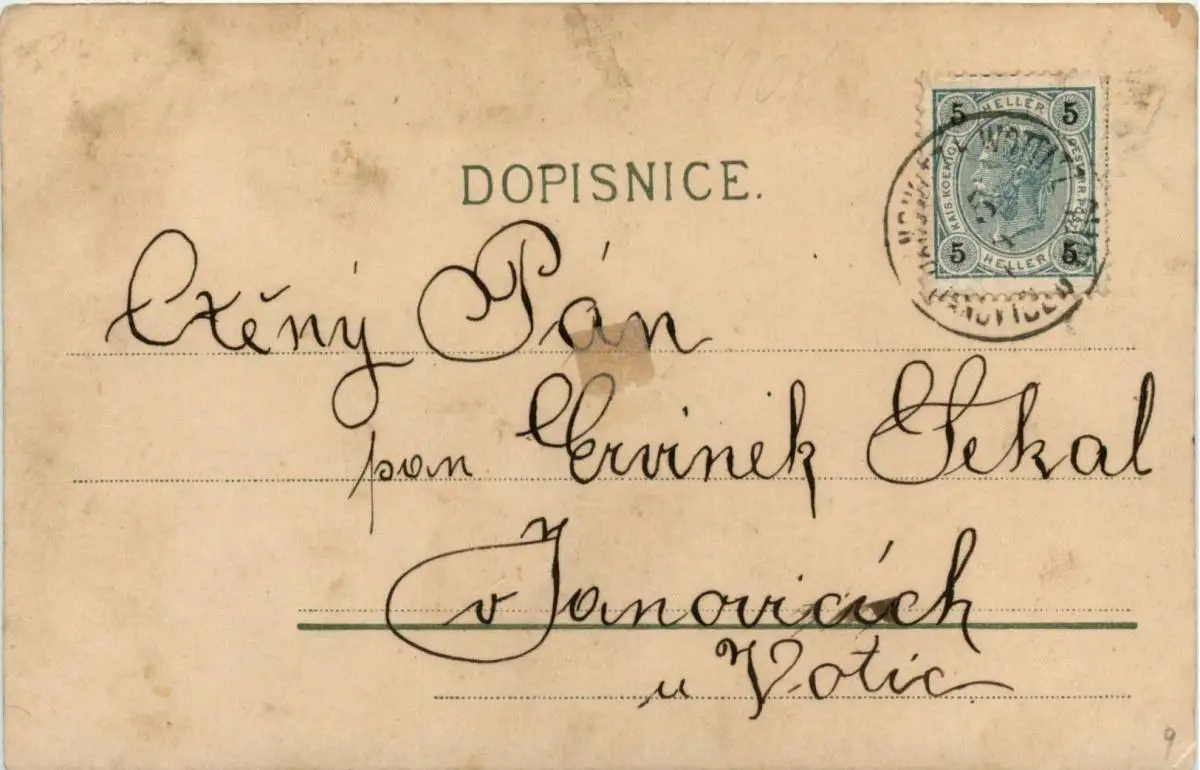 DOPISNICE.
5 HELLER 5
KAIS. KOENIGL.
5 HELLER 5
WOTITZ
Ctěný Pán
pan Ervinek Sekal
v Janovicích
u Votic
9